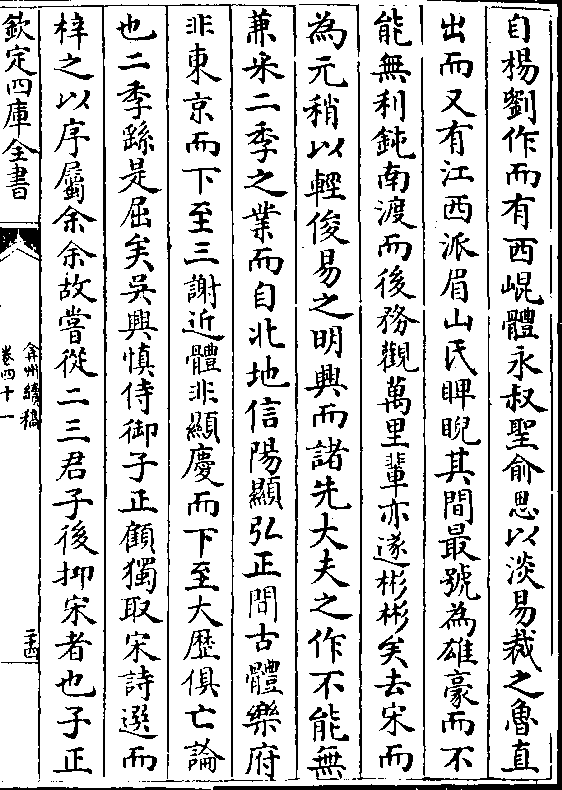 自楊劉作而有西崐體永叔聖俞思以淡易裁之魯直
出而又有江西派眉山氏睥睨其間最號為雄豪而不
能無利鈍南渡而後務觀萬里輩亦遂彬彬矣去宋而
為元稍以輕俊易之明興而諸先大夫之作不能無
兼采二季之業而自北地信陽顯弘正間古體樂府
非東京而下至三謝近體非顯慶而下至大歴俱亡論
也二季繇是屈矣吳興慎侍御子正顧獨取宋詩選而
梓之以序屬余余故嘗從二三君子後抑宋者也子正
欽定四庫全書
弇州續稿
卷四十一
二十四